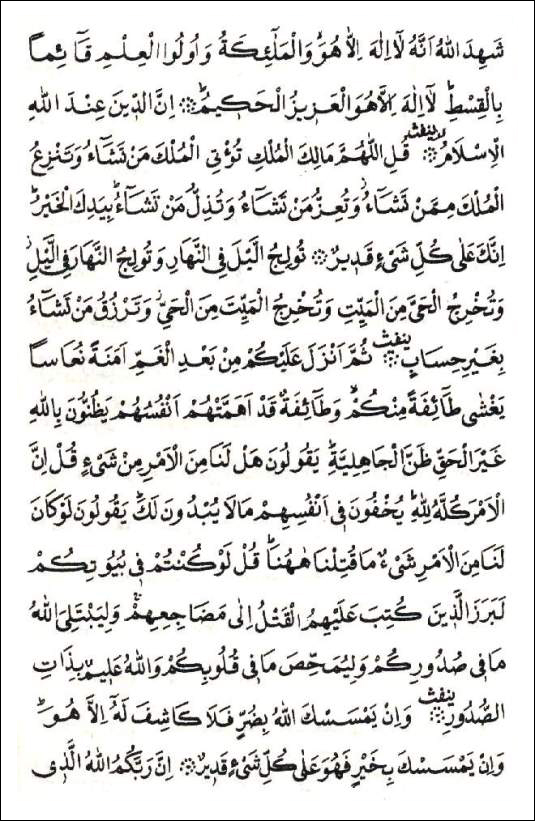 شَهِدَ اللهُ اَنَّهُ لَآ اِلٰهَ اِلَّا هُوَۙ وَالْمَلٰٓئِكَةُ وَاُولُوا الْعِلْمِ قَآئِماً
بِالْقِسْطِؕ لَآ اِلٰهَ اِلَّا هُوَ الْعَزِيزُ الْحَكِيمُؕ ۞ اِنَّ الدِّينَ عِنْدَ اللهِ
الْاِسْلَامُ ۞ ينفث قُلِ اللّٰهُمَّ مَالِكَ الْمُلْكِ تُؤْتِى الْمُلْكَ مَنْ تَشَآءُ وَتَنْزِعُ
الْمُلْكَ مِمَّنْ تَشَآءُۘ وَتُعِزُّ مَنْ تَشَآءُ وَتُذِلُّ مَنْ تَشَآءُؕ بِيَدِكَ الْخَيْرُؕ
اِنَّكَ عَلٰى كُلِّ شَىْءٍ قَدِيرٌ ۞ تُولِجُ الَّيْلَ فِى النَّهَارِ وَتُولِجُ النَّهَارَ فِى الَّيْلِۘ
وَتُخْرِجُ الْحَىَّ مِنَ الْمَيِّتِ وَتُخْرِجُ الْمَيِّتَ مِنَ الْحَىِّۘ وَتَرْزُقُ مَنْ تَشَآءُ
بِغَيْرِ حِسَابٍ ۞ ينفث ثُمَّ اَنْزَلَ عَلَيْكُمْ مِنْ بَعْدِ الْغَمِّ اَمَنَةً نُعَاساً
يَغْشٰى طَآئِفَةً مِنْكُمْۙ وَطَآئِفَةٌ قَدْ اَهَمَّتْهُمْ اَنْفُسُهُمْ يَظُنُّونَ بِاللهِ
غَيْرَ الْحَقِّ ظَنَّ الْجَاهِلِيَّةِؕ يَقُولُونَ هَلْ لَنَا مِنَ الْاَمْرِ مِنْ شَىْءٍؕ قُلْ اِنَّ
الْاَمْرَ كُلَّهُ لِلّٰهِؕ يُخْفُونَ فِى اَنْفُسِهِمْ مَالَا يُبْدُونَ لَكَؕ يَقُولُونَ لَوْ كَانَ
لَنَا مِنَ الْاَمْرِ شَىْءٌ مَا قُتِلْنَا هٰهُنَاؕ قُلْ لَوْ كُنْتُمْ فِى بُيُوتِكُمْ
لَبَرَزَ الَّذِينَ كُتِبَ عَلَيْهِمُ الْقَتْلُ اِلٰى مَضَاجِعِهِمْۚ وَلِيَبْتَلِىَ اللهُ
مَا فِى صُدُورِكُمْ وَلِيُمَحِّصَ مَا فِى قُلُوبِكُمْؕ وَاللهُ عَلِيمٌ بِذَاتِ
الصُّدُورِ ۞ ينفث وَاِنْ يَمْسَسْكَ اللهُ بِضُرٍّ فَلَا كَاشِفَ لَهُٓ اِلَّا هُوَؕ
وَاِنْ يَمْسَسْكَ بِخَيْرٍ فَهُوَ عَلٰى كُلِّ شَىْءٍ قَدِيرٌ ۞ اِنَّ رَبَّكُمُ اللهُ الَّذِى